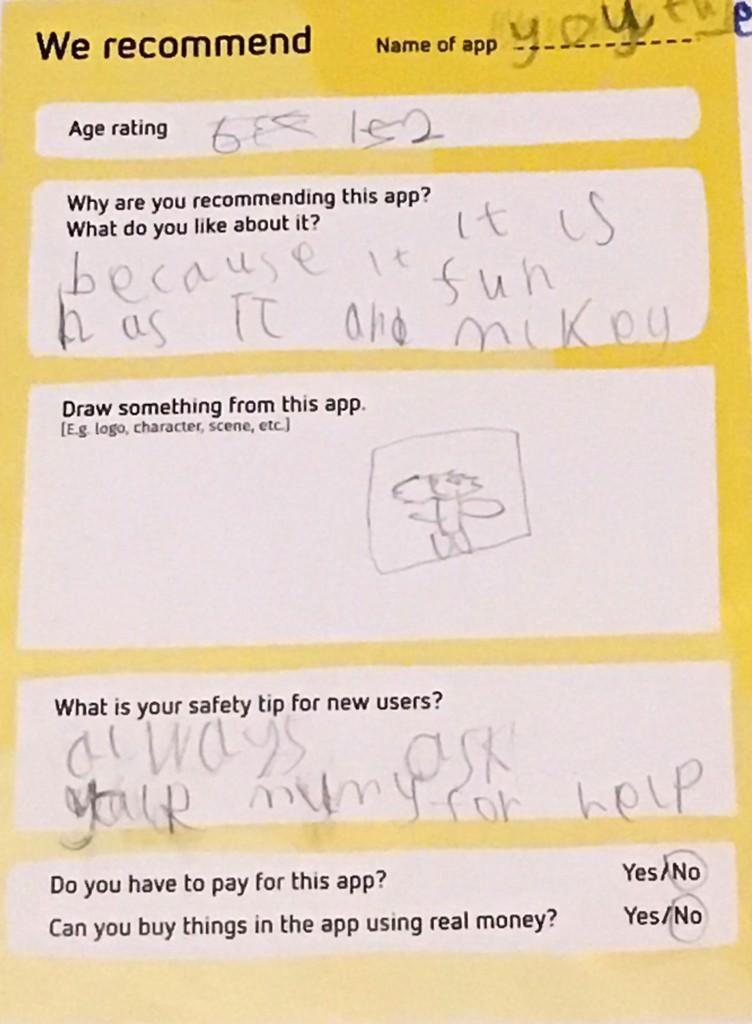 We recommend
Name of app
Age rating
Why are you recommending this app?
What do you like about it?
it is
because it fun
has IT and mickey
Draw something from this app.
[E.g. logo, character, scene, etc.]
What is your safety tip for new users?
always ask
mumy for help
Do you have to pay for this app? Yes/No
Can you buy things in the app using real money? Yes/No